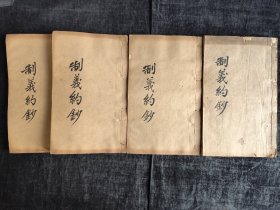 制義約鈔
制義約鈔
制義約鈔
制義約鈔